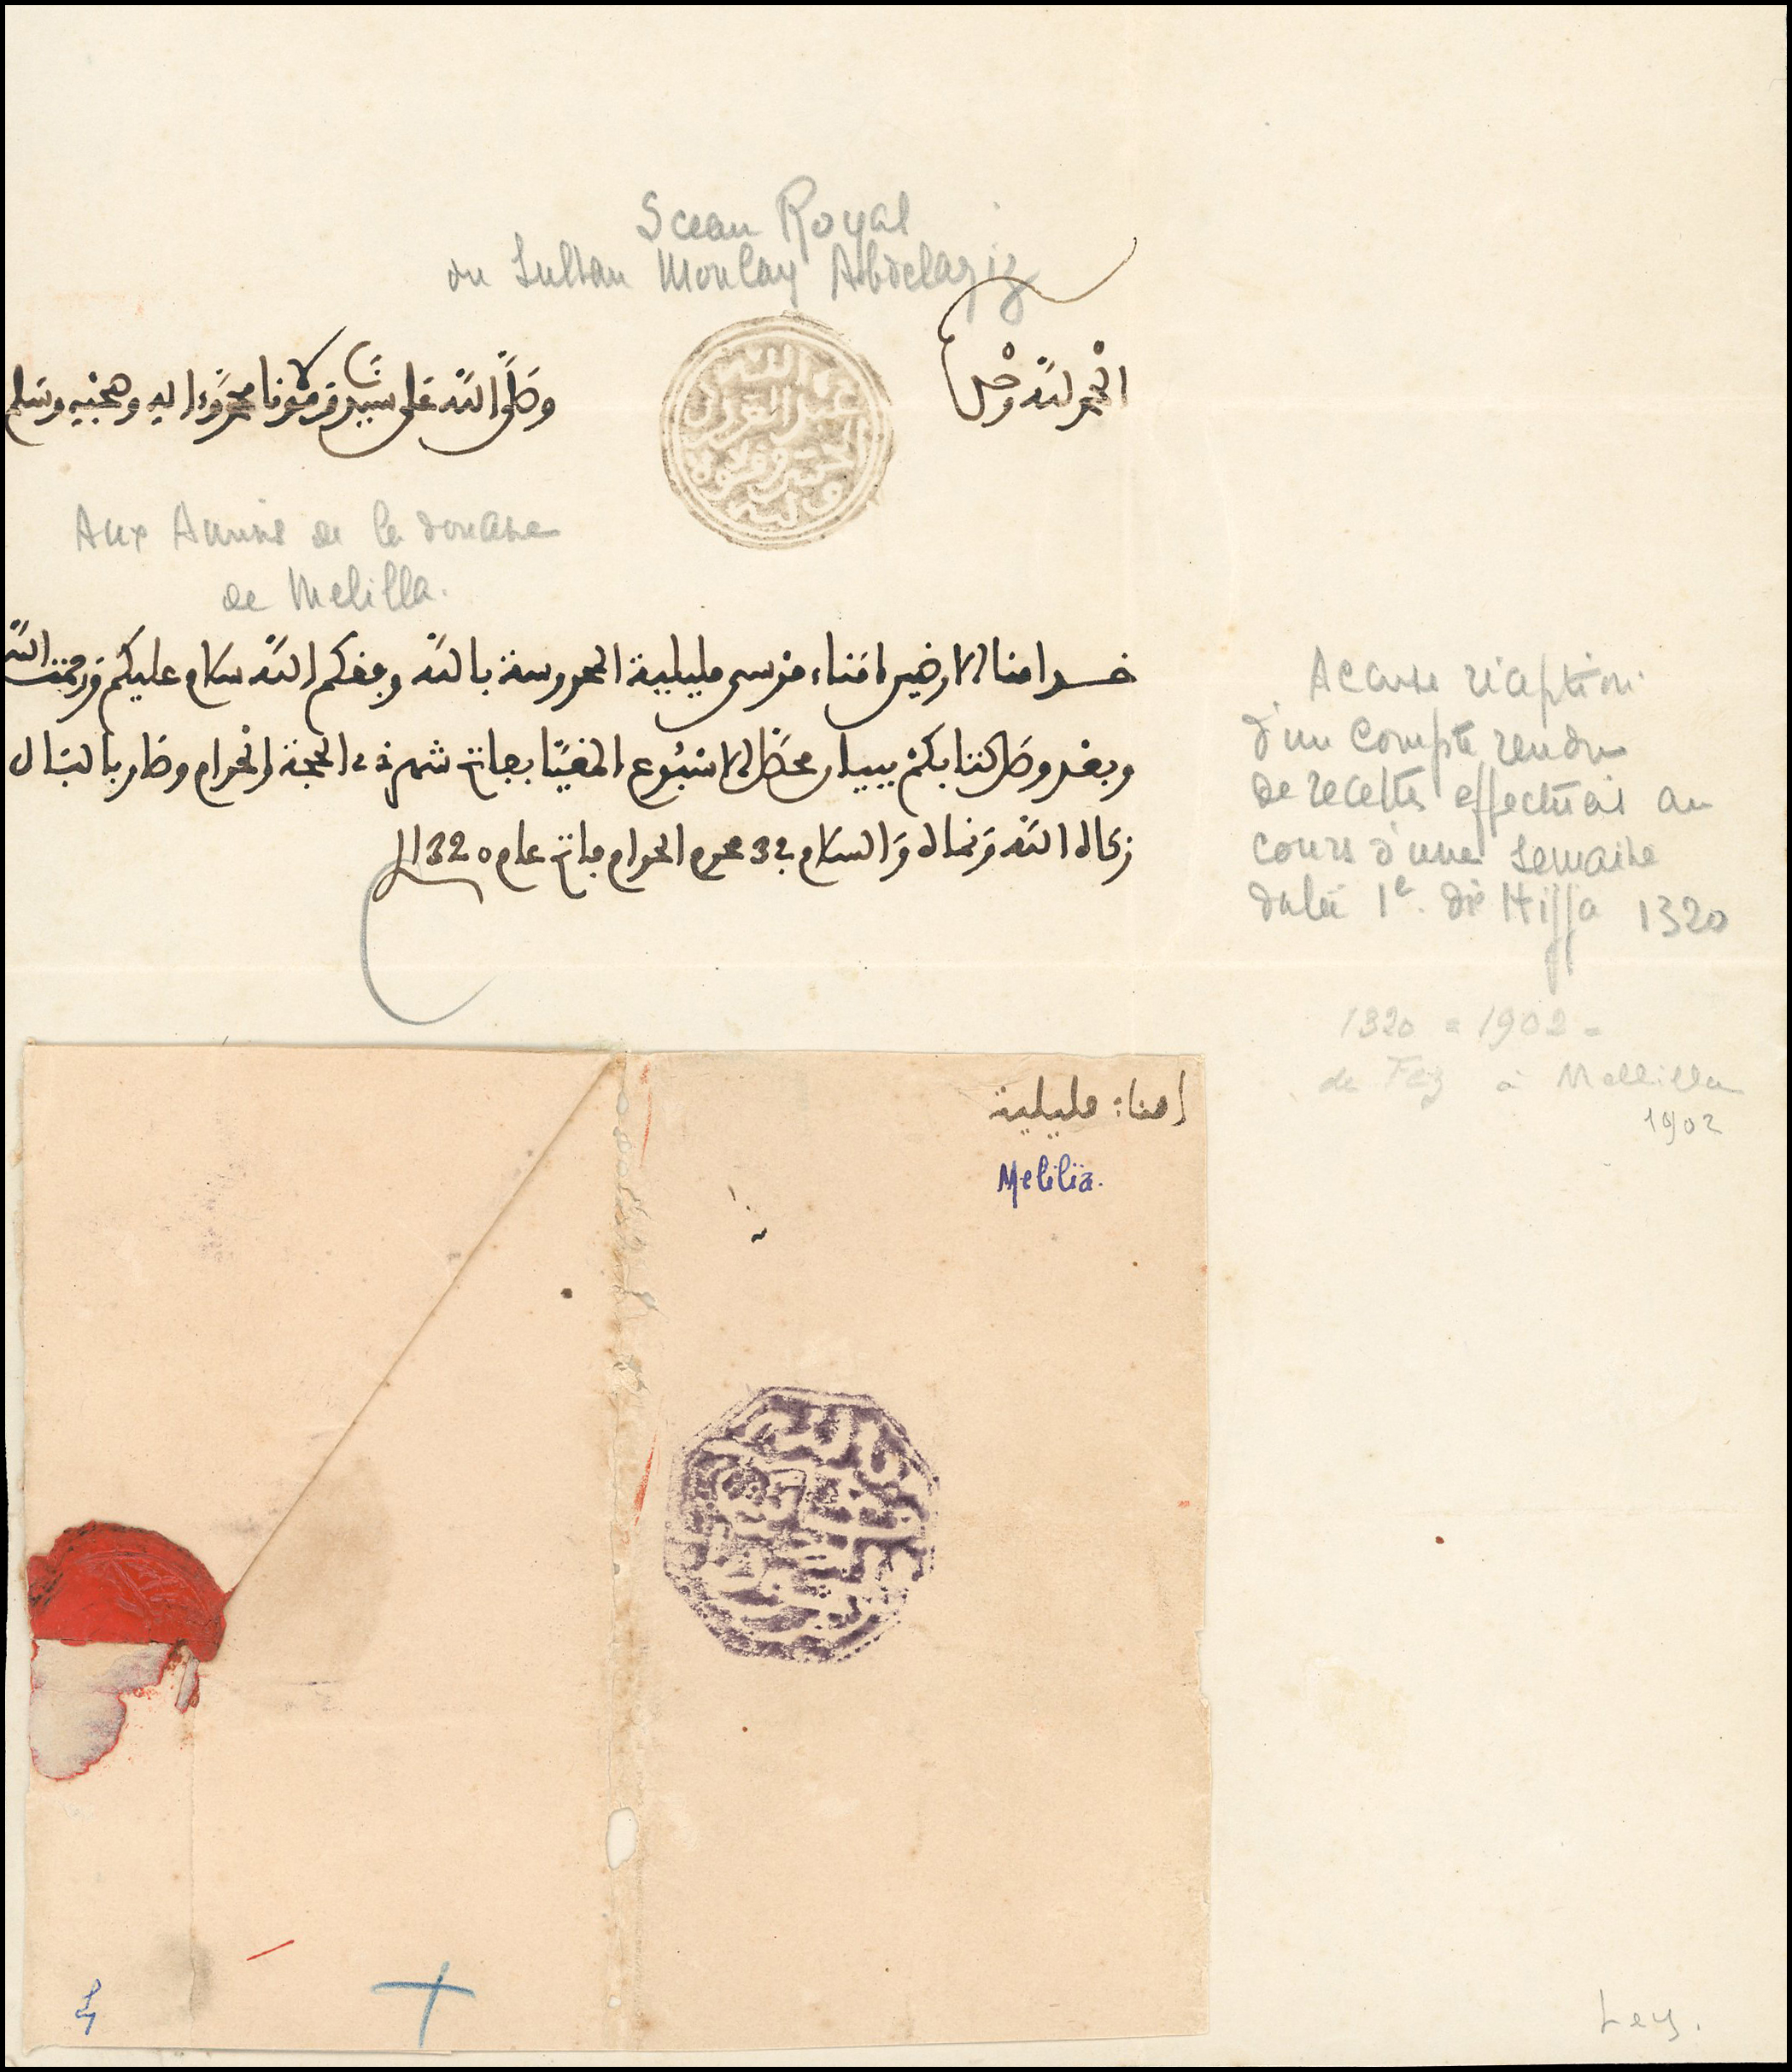 Sceau Royal
du Sultan Moulay Abdelaziz
الحمد لله وحده
وصلى الله على سيدنا ومولانا محمد وءاله وصحبه وسلم
Aux Amins de la douane
de Melilla.
خدامنا الارضين امناء مرسى مليلية المحروسة بالله وفقكم الله سلام عليكم ورحمت الله
وبعد وصل كتابكم ببيان محصل الاسبوع المغيا بفاتح شهر ذي الحجة الحرام وصار بالبال
والسلام في محرم الحرام فاتح عام
Accuse réception
d'un compte rendu
de recettes effectuées au
cours d'une semaine
datée 1e. die Hijja 1320
1320 = 1902 =
de Fez à Mellilla
1902
امناء مليلية
Melilia.
Ley.